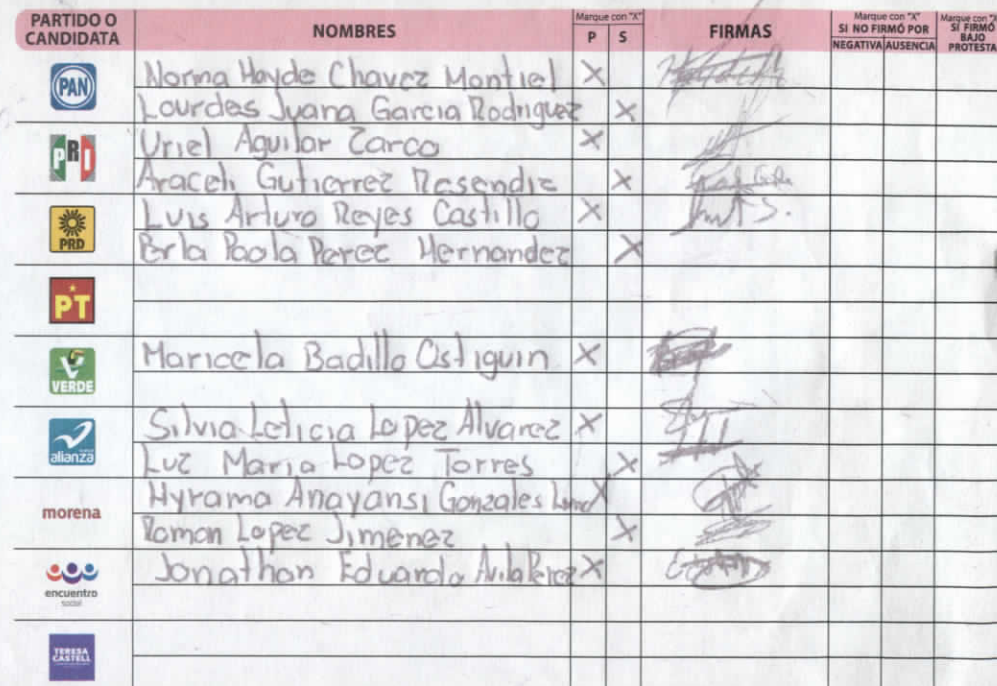 PARTIDO O CANDIDATA NOMBRES Marque con "X" P S FIRMAS Marque con "X" SI NO FIRMÓ POR NEGATIVA AUSENCIA Marque con "X" SÍ FIRMÓ BAJO PROTESTA
PAN Norma Hayde Chavez Montiel X
Lourdes Juana Garcia Rodriguez X
PRI Uriel Aguilar Zarco X
Araceli Gutierrez Resendiz X
PRD Luis Arturo Reyes Castillo X
Perla Paola Perez Hernandez X
PT
VERDE Maricela Badillo Ostiguin X
alianza Silvia Leticia Lopez Alvarez X
Luz Maria Lopez Torres X
morena Hyrama Anayansi Gonzales X
Roman Lopez Jimenez X
encuentro social Jonathan Eduardo Avila Perez X
TERESA CASTELL